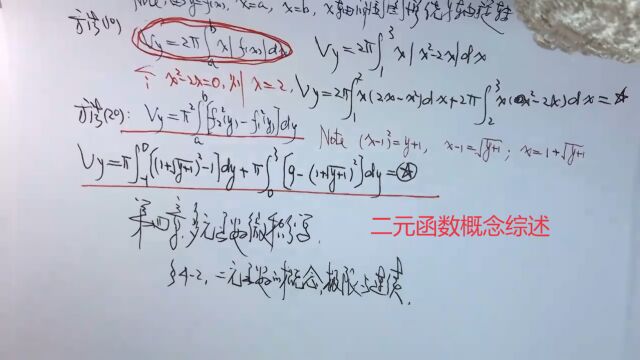 Note, 由 y=f(x), x=a, x=b, x
方法(1°)
Vy=2π∫_a^b x|f(x)|dx Vy=2π∫_1^3 x|x²-2x|dx
x²-2x=0, x=2, Vy=2π∫_1^2 x(2x-x²)dx+2π∫_2^3 x(x²-2x)dx=☆
方法(2°): Vy=π∫_a^b[f₂²(y)-f₁²(y)]dy
Note (x-1)²=y+1, x-1=√y+1; x=1+√y+1
Vy=π∫_-1^0{(1+√y+1)²-1}dy+π∫_0^3[9-(1+√y+1)²]dy=☆
第四章 多元函数微积分
二元函数概念综述
§4-2, 二元函数的概念, 极限与连续.